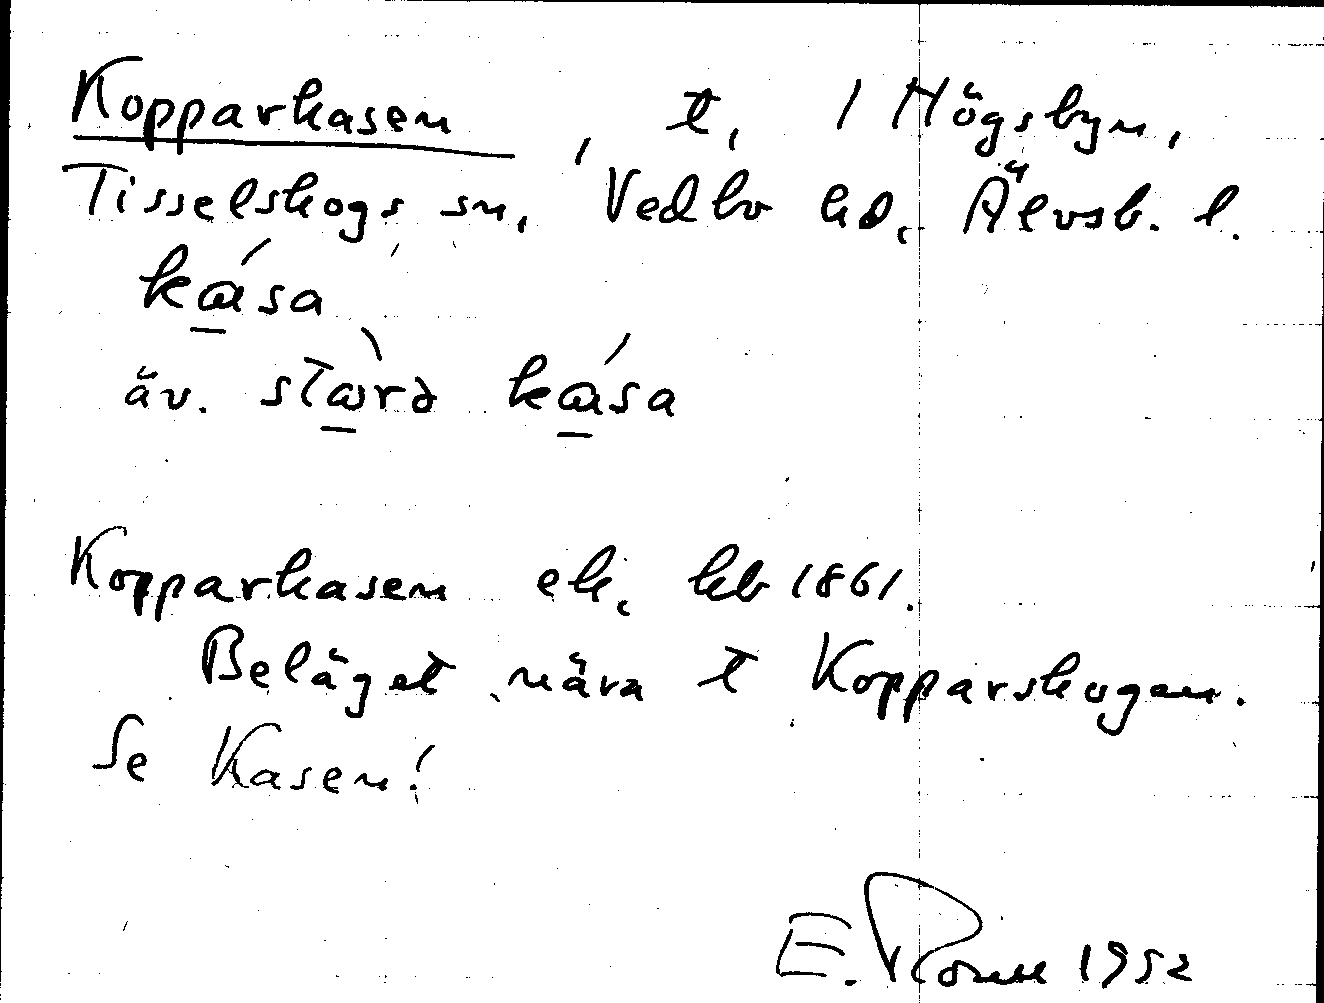 Kopparkasen, t, 1 Högsbyn,
Tisselskogs sn, Vedbo hd, Älvsb. l.
ká̱sa
äv. stà̱rə ká̱sa
Kopparkasen ek, kb 1861.
Beläget nära t Kopparskogen.
Se Kasen!
E. 1952